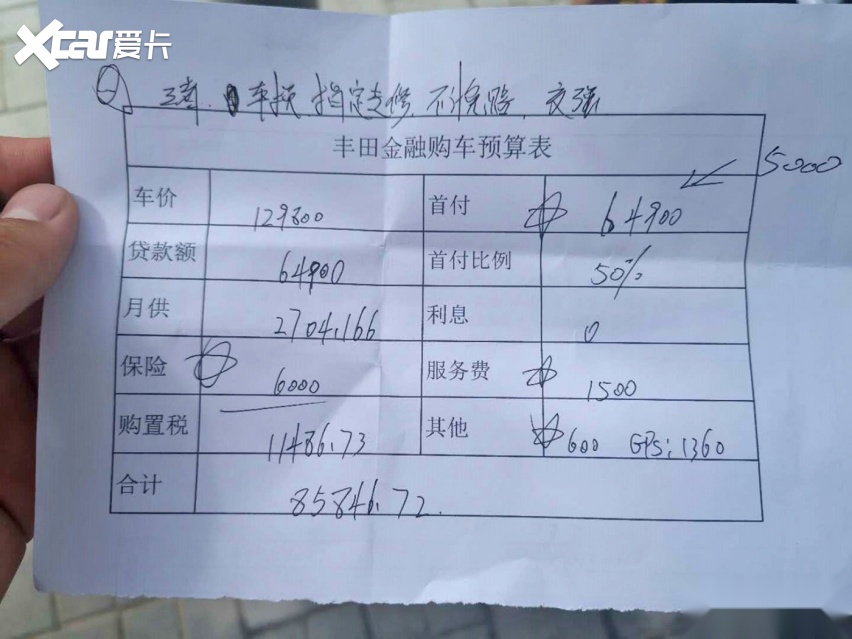 Xcar爱卡
三者. 车损 指定专修. 不计免赔. 交强
丰田金融购车预算表
5000
车价 129800 首付 64900
贷款额 64900 首付比例 50%
月供 2704.166 利息 0
保险 6000 服务费 1500
购置税 11486.73 其他 600 GPS:1360
合计 85846.72.